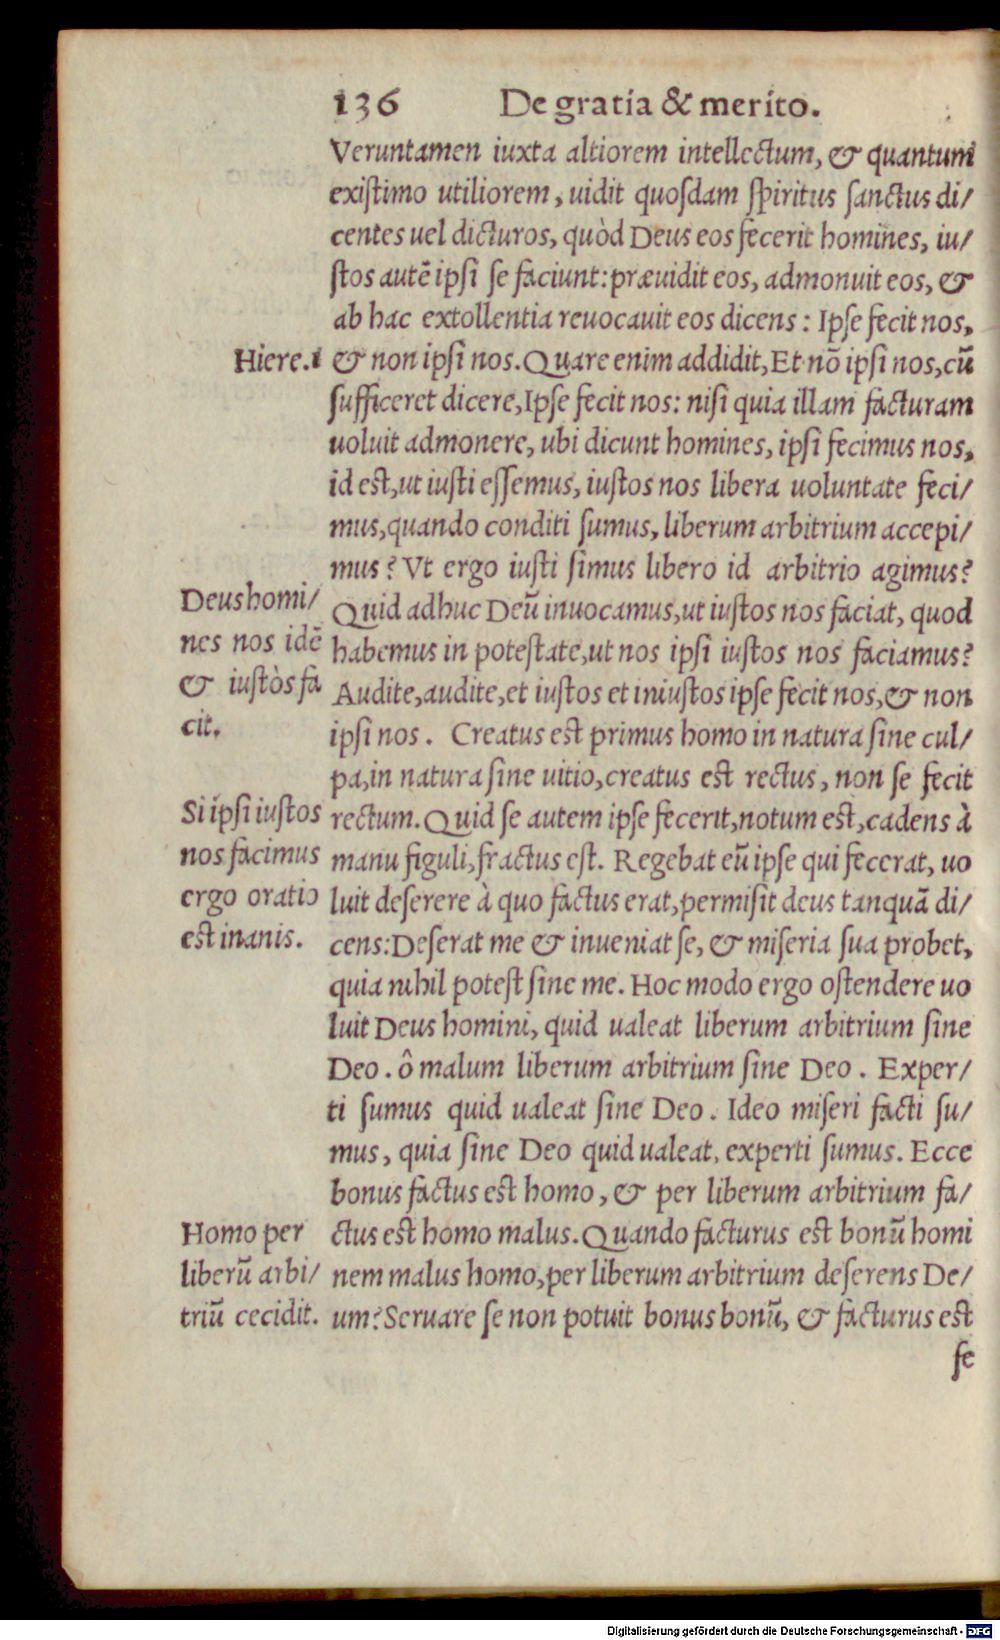 136 De gratia & merito.
Veruntamen iuxta altiorem intellectum, & quantum
existimo utiliorem, uidit quosdam spiritus sanctus di/
centes uel dicturos, quòd Deus eos fecerit homines, iu/
stos autẽ ipsi se faciunt: præuidit eos, admonuit eos, &
ab hac extollentia reuocauit eos dicens: Ipse fecit nos,
Hiere.1
& non ipsi nos. Quare enim addidit, Et nõ ipsi nos, cũ
sufficeret dicere, Ipse fecit nos: nisi quia illam facturam
uoluit admonere, ubi dicunt homines, ipsi fecimus nos,
id est, ut iusti essemus, iustos nos libera uoluntate feci/
mus, quando conditi sumus, liberum arbitrium accepi/
mus? Vt ergo iusti simus libero id arbitrio agimus?
Deus homi/
nes nos idẽ
& iustòs fa
cit.
Quid adhuc Deũ inuocamus, ut iustos nos faciat, quod
habemus in potestate, ut nos ipsi iustos nos faciamus?
Audite, audite, et iustos et iniustos ipse fecit nos, & non
ipsi nos. Creatus est primus homo in natura sine cul/
pa, in natura sine uitio, creatus est rectus, non se fecit
Si ipsi iustos
nos facimus
ergo oratio
est inanis.
rectum. Quid se autem ipse fecerit, notum est, cadens à
manu figuli, fractus est. Regebat eũ ipse qui fecerat, uo
luit deserere à quo factus erat, permisit deus tanquã di/
cens: Deserat me & inueniat se, & miseria sua probet,
quia nihil potest sine me. Hoc modo ergo ostendere uo
luit Deus homini, quid ualeat liberum arbitrium sine
Deo. ô malum liberum arbitrium sine Deo. Exper/
ti sumus quid ualeat sine Deo. Ideo miseri facti su/
mus, quia sine Deo quid ualeat, experti sumus. Ecce
bonus factus est homo, & per liberum arbitrium fa/
Homo per
liberũ arbi/
triũ cecidit.
ctus est homo malus. Quando facturus est bonũ homi
nem malus homo, per liberum arbitrium deserens De/
um? Seruare se non potuit bonus bonũ, & facturus est
se
Digitalisierung gefördert durch die Deutsche Forschungsgemeinschaft - DFG